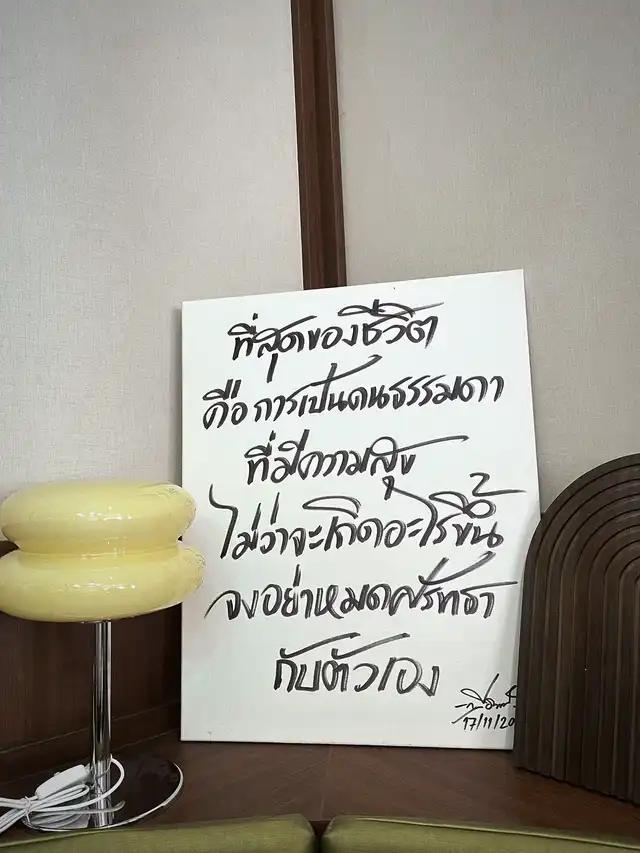 ที่สุดของชีวิต
คือ การเป็นคนธรรมดา
ที่มีความสุข
ไม่ว่าจะเกิดอะไรขึ้น
จงอย่าหมดศรัทธา
กับตัวเอง
17/11/20